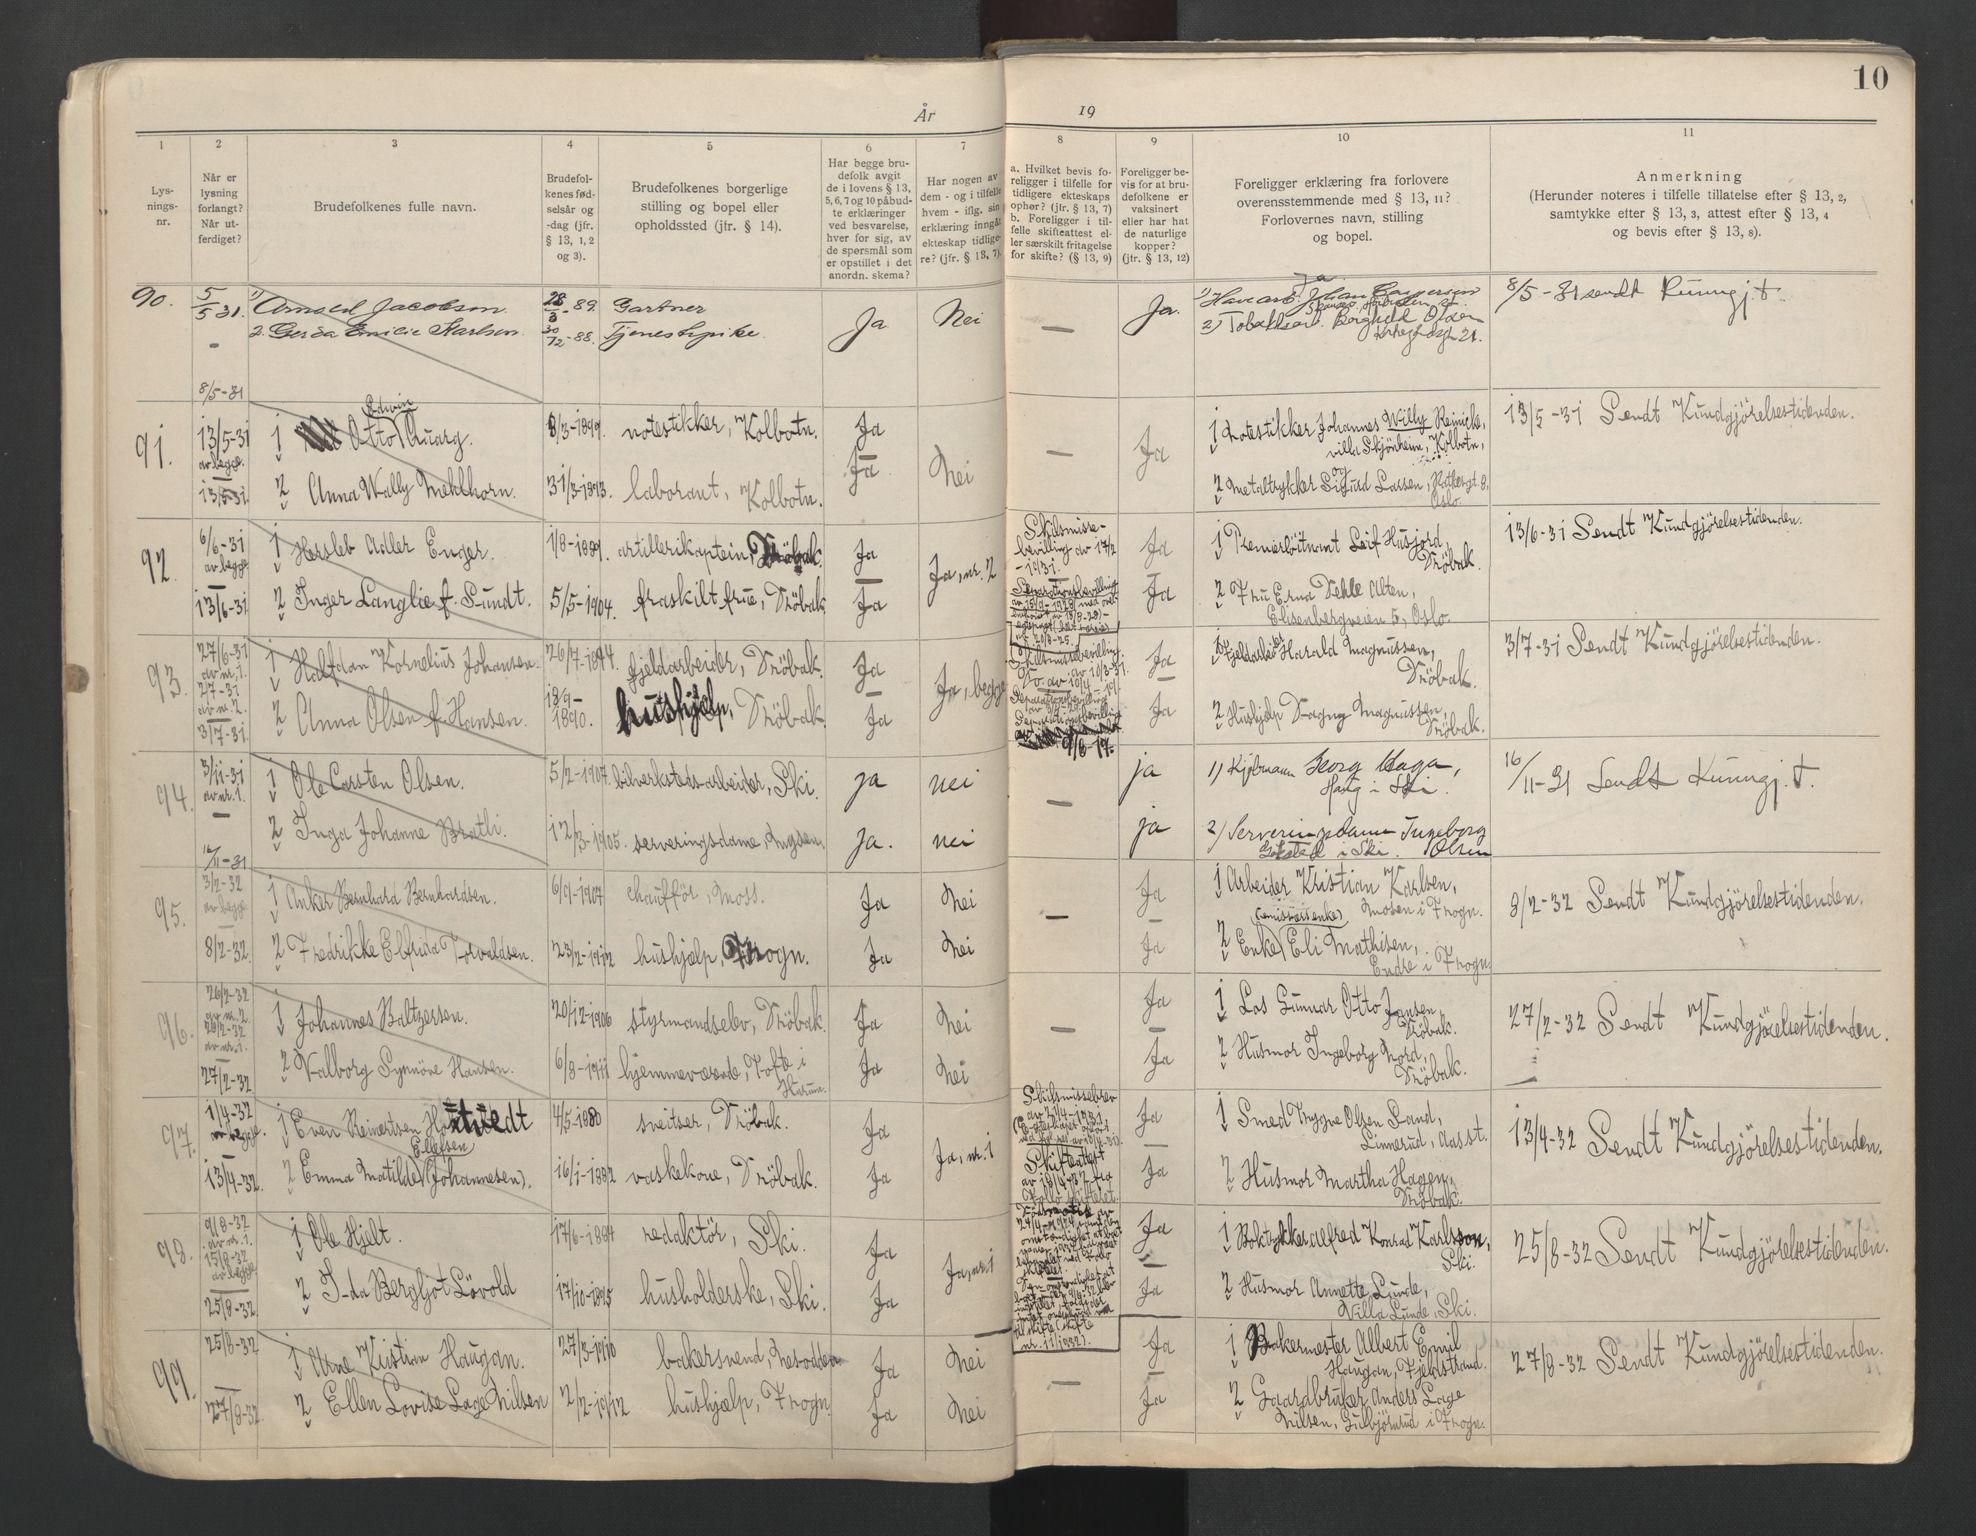 10
År
19
1
2
3
4
5
6
7
8
9
10
11
Lys-
nings-
nr.
Når er
lysning
forlangt?
Når ut-
ferdiget?
Brudefolkenes fulle navn.
Brudefol-
kenes fød-
selsår og
-dag (jfr.
§ 13, 1, 2
og 3).
Brudefolkenes borgerlige
stilling og bopel eller
opholdssted (jfr. § 14).
Har begge bru-
defolk avgit
de i lovens § 13,
5, 6, 7 og 10 påbud-
te erklæringer
ved besvarelse,
hver for sig, av
de spersmål som
er opstillet i det
anordn. skema?
Har nogen av
dem - og i tilfelle
hvem - iflg. sin
erklæring inngåt
ekteskap tidlige-
re? (jfr. § 13, 7).
a. Hvilket bevis fo-
religger i tilfelle for
tidligere ekteskaps
ophør? (jfr. § 13, 7)
b. Foreligger i til-
felle skifteattest el-
ler særskilt fritagelse
for skifte? (§ 13, 9)
Foreligger be-
vis for at bru-
defolkene er
vaksinert
eller har hat
de naturlige
kopper?
(jfr. § 13, 12)
Foreligger erklæring fra forlovere
overensstemmende med § 13, 11?
Forlovernes navn, stilling
og bopel.
Anmerkning
(Herunder noteres i tilfelle tillatelse efter § 13, 2,
samtykke efter § 13, 3, attest efter § 13, 4
og bevis efter § 13, 8).
90. 5/5 31. 1) Arnold Jacobsen 28/3-89. Gartner Ja Nei — Ja. Ja 8/5-31 sendt Kunngj.t.
2. Gerda Emilie Karlsen 30/12-88. Tjenestepike 2) Borghild Olsen
8/5-31
91. 13/5-31 1 Otto Edwin Quarg. 8/3-1899. notestikker, Kolbotn. Ja Nei — Ja 1 Notestikker Johannes Willy Reinicke, 13/5-31 Sendt Kundgjörelsestidenden.
av begge. villa Skjönheim, Kolbotn, og
13/5-31 2 Anna Wally Mehlhorn. 31/3-1893. laborant, Kolbotn. Ja 2 Metaltrykker Sigurd Larsen,
Oslo.
92. 6/6-31 1 Hersleb Adler Enger. 1/8-1891. artillerikaptein, Dröbak. Ja Ja, nr. 2 Skilsmisse-
bevilling av 17/2
-1931. Ja 1 Premierlöitnant Leif Husjord, 13/6-31 Sendt Kundgjörelsestidenden.
av begge Dröbak.
13/6-31 2 Inger Langlie f. Sundt. 5/5-1904. fraskilt frue, Dröbak Ja Ja 2 Fru Erna Alten,
Elisenbergveien 5, Oslo.
93. 27/6-31 1 Halfdan Kornelius Johansen. 26/7-1894. fjeldarbeider, Dröbak. Ja Ja, begge Ja 1 Fjeldarbeider Harald Magnussen, 3/7-31 Sendt Kundgjörelsestidenden.
av nr. 1. Dröbak.
2/7-31
av nr. 2. 2 Anna Olsen f. Hansen. 18/9-1890. hushjælp, Dröbak. Ja 9/6-17. Ja 2 Hushjælp Dagny Magnussen,
3/7-31. Dröbak.
94. 3/11-31 1 Ole Carsten Olsen. 5/2-1907. bilverkstedsarbeider, Ski. ja nei — ja 1) Kjøbmann Georg Haga, 16/11-31 Sendt Kunngj.t.
av nr. 1. Haug i Ski.
— 2 Inga Johanne Bratli. 12/3-1905. serveringsdame, Ja. nei ja 2) Serveringsdame Ingeborg
16/11-31 i Ski. Olsen
95. 3/2-32 1 Anker Bernhard Bernhardsen. 6/9-1907 chauffør, Moss. Ja Nei — Ja 1 Arbeider Kristian Karlsen, 8/2-32 Sendt Kundgjörelsestidenden.
av begge Mosen i Frogn.
8/2-32. 2 Fredrikke Elfrida Torvaldsen. 23/2-1912 hushjælp, Frogn. Ja Nei Ja 2 Enke (emissærenke) Eli Mathisen,
Endse i Frogn.
96. 26/2-32 1 Johannes Baltzersen. 20/12-1906 styrmandselev, Dröbak. Ja Nei — Ja 1 Los Gunnar Otto Jansen, 27/2-32 Sendt Kundgjörelsestidenden.
av nr. 2. Dröbak.
26/2-32
av nr. 1. 2 Valborg Synnöve Hansen. 6/8-1911 hjemmeværende, Tofte i
Hurum. Ja Nei Ja 2 Husmor Ingeborg Nord,
27/2-32 Dröbak.
97. 1/4-32 1 Even Reinertsen 4/5-1880 sveitser, Dröbak. Ja Ja, nr. 1 Skilsmissebrev
av 21/4-1931. Ja 1 Smed Trygve Olsen Sand, 13/4-32 Sendt Kundgjörelsestidenden.
av begge. Linnerud, Aas st.
13/4-32. 2 Emma Matilde Ellefsen (Johannesen). 16/1-1882 vaskekone, Dröbak. Ja Skifteattest
av 13/4-1932 fra
Follo skifteret. Ja 2 Husmor Martha Hagen,
Dröbak.
98. 9/8-32 1 Ole Hjelt. 17/6-1894 redaktör, Ski. Ja Ja, nr. 1 Ja 1 Boktrykker Alfred Konrad Karlsson, 25/8-32 Sendt Kundgjörelsestidenden.
av nr. 1. Ski.
15/8-32
av begge. 2 Ida Bergljot Lövold 17/10-1895 husholderske, Ski. Ja Ja 2 Husmor Annette Lunde,
25/8-32. Villa Lunde, Ski.
nr. 11/1932).
99. 25/8-32 1 Arne Kristian Haugan. 27/3-1910 bakersvend, Nesodden Ja Nei — Ja 1 Bakermester Albert Emil 27/8-32 Sendt Kundgjörelsestidenden.
Haugan, Fjeldstrand.
27/8-32. 2 Ellen Lovise Lage Nilsen 2/2-1912 hushjælp, Frogn. Ja Nei Ja 2 Gaardbruker Anders Lage
Nilsen, Gulbjörnrud i Frogn.